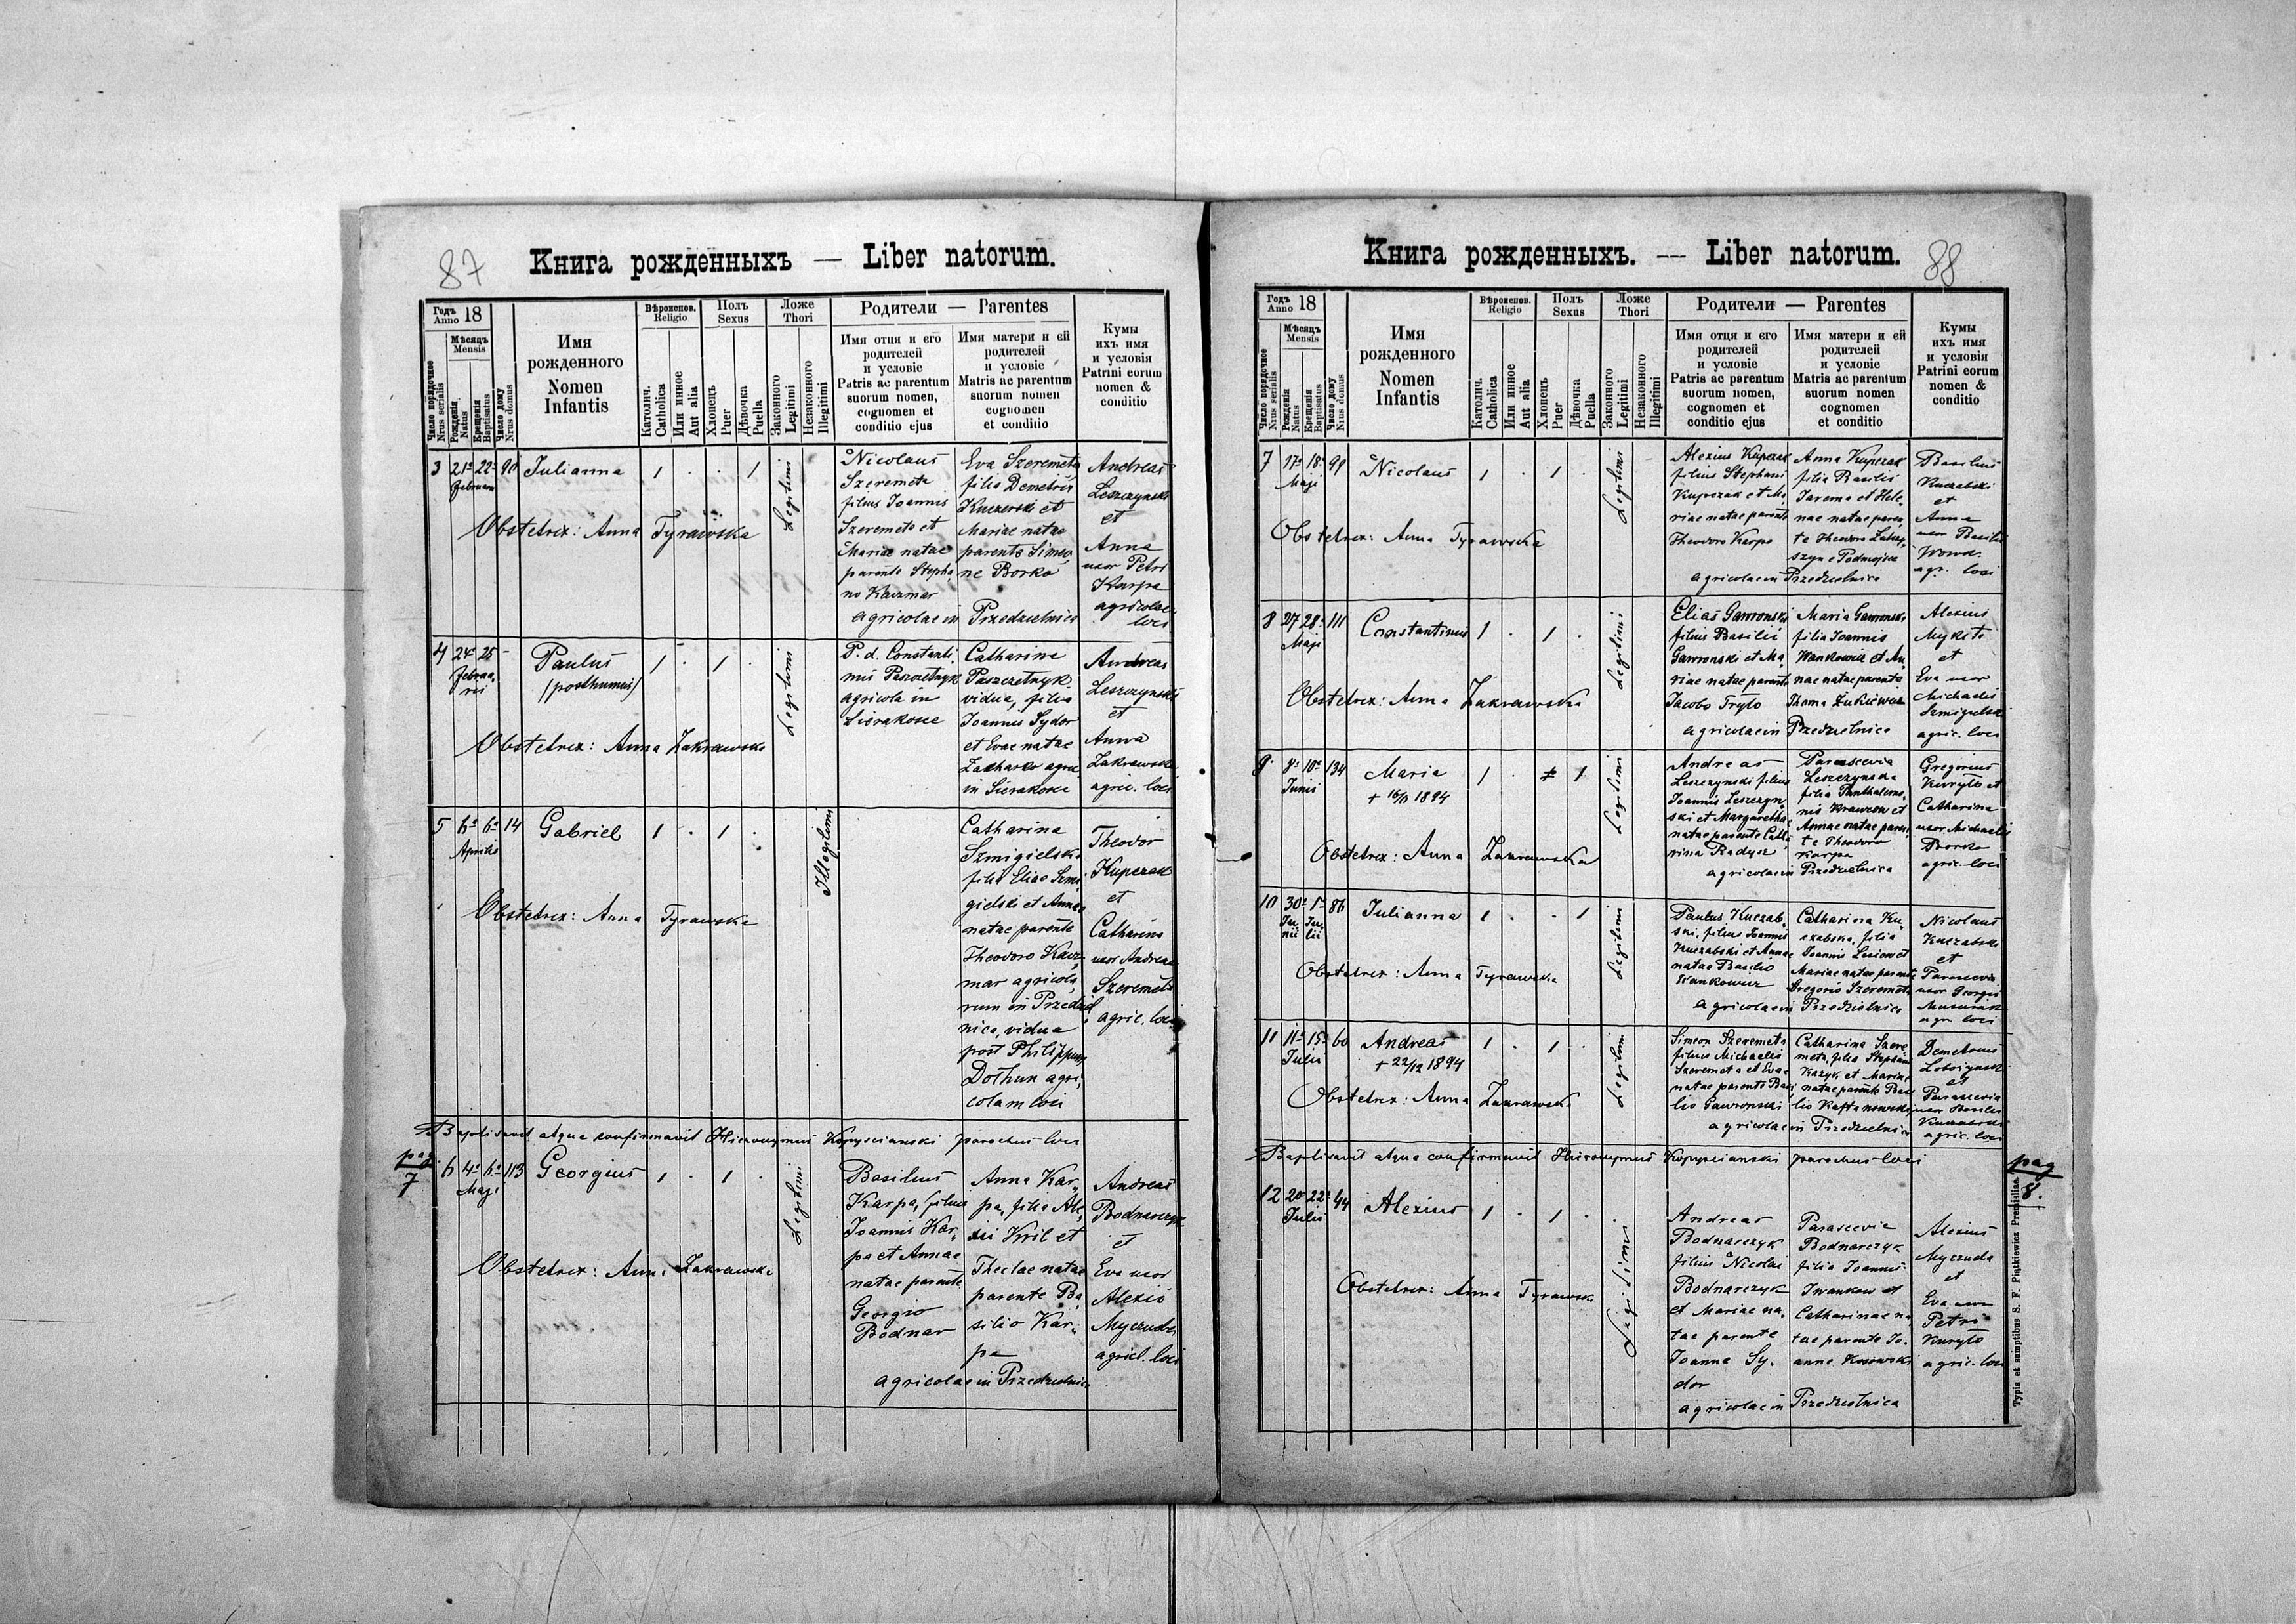 87
Книга рожденныхъ — Liber natorum.
Годъ Anno 18
Мѣсяцъ Mensis
Число порядочное Nrus serialis
Рожденія Natus
Крещенія Baptisatus
Число дому Nrus domus
Имя рожденного
Nomen Infantis
Вѣроиспов. Religio
Католич. Catholica
Или инное Aut alia
Полъ Sexus
Хлопецъ Puer
Дѣвочка Puella
Ложе Thori
Законного Legitimi
Незаконного Illegitimi
Родители — Parentes
Имя отця и его
родителей
и условіе
Patris ac parentum
suorum nomen,
cognomen et
conditio ejus
Имя матери и ей
родителей
и условіе
Matris ac parentum
suorum nomen
cognomen
et conditio
Кумы
ихъ имя
и условія
Patrini eorum
nomen &
conditio
3 21a 22a 90 Julianna 1 . . 1 Legitimi
Februarii
Nicolaus
Szeremeta
filius Joannis
Szeremeta et
Mariae natae
parente Stepha,
no Kaczmar
agricolae in Przedzielnica
Eva Szeremeta
filia Demetrii
Kuczerski et
Mariae natae
parente Simeo,
ne Borko
Andreas
Leszczynski
et
Anna
uxor Petri
Karpa
agricolae
loci
Obstetrix: Anna Tyrawska
4 24a 25a - Paulus 1 . 1 . Legitimi
Februa,
rii
/posthumus/
P. d. Constanti,
nus Paszczetnyk
agricola in
Sierakosce
Catharina
Paszczetnyk
vidua, filia
Joannis Sydor
et Evae natae
Zacharko agric.
in Sierakosce
Andreas
Leszczynski
et
Anna
Zakrawska
agric. loci
Obstetrix: Anna Zakrawska
5 6a 6a 14 Gabriel 1 . 1 . Illegitimi
Aprilis
Catharina
Szmigielska
filia Eliae Szmi,
gielski et Annae
natae parente
Theodoro Kacz,
mar agricola,
rum in Przedziel,
nica, vidua
post Philippum
Dothun agri,
colam loci
Theodor
Kupczak
et
Catharina
uxor Andreae
Szeremeta
agric. loci
Obstetrix: Anna Tyrawska
Baptisavit atque confirmavit Hieronymus Kopyscianski parochus loci
pag. 7
6 4a 6a 113 Georgius 1 . 1 . Legitimi
Maji
Basilius
Karpa, filius
Joannis Kar,
pa et Annae
natae parente
Georgio
Bodnar
Anna Kar,
pa, filia Ale,
xii Kril et
Theclae natae
parente Ba,
silio Kar,
pa
agricolae in Przedzielnica
Andreas
Bodnarczyk
et
Eva uxor
Alexio
Myczuda
agricl. loci
Obstetrix: Anna Zakrawska
88
Книга рожденныхъ. — Liber natorum.
Годъ Anno 18
Мѣсяцъ Mensis
Число порядочное Nrus serialis
Рожденія Natus
Крещенія Baptisatus
Число дому Nrus domus
Имя
рожденного
Nomen
Infantis
Вѣроиспов. Religio
Католич. Catholica
Или инное Aut alia
Полъ Sexus
Хлопецъ Puer
Дѣвочка Puella
Ложе Thori
Законного Legitimi
Незаконного Illegitimi
Родители — Parentes
Имя отця и его
родителей
и условіе
Patris ac parentum
suorum nomen,
cognomen et
conditio ejus
Имя матери и ей
родителей
и условіе
Matris ac parentum
suorum nomen
cognomen
et conditio
Кумы
ихъ имя
и условія
Patrini eorum
nomen &
conditio
7 17a 18a 99 Nicolaus 1 . 1 . Legitimi
Maji
Alexius Kupczak
filius Stephani
Kupczak et Ma,
riae natae parente
Theodoro Karpa
Anna Kupczak
filia Basilii
Jarema et Hele,
nae natae paren,
te Theodoro
szyn e Podmojsce
agricolae in Przedzielnica
Basilius
Kuczabski
et
Anna
uxor Basilii
agr. loci
Obstetrix: Anna Tyrawska
8 27 28a 111 Constantinus 1 . 1 . Legitimi
Maji
Elias Gawronski
filius Basilii
Gawronski et Ma,
riae natae parente
Jacobo Fryto
Maria Gawronski
filia Joannis
Wankowicz et An,
nae natae parente
Thoma Zukiewicz
agricolae in Przedzielnica
Alexius
Mykita
et
Eva uxor
Michaelis
Szmigielski
agric. loci
Obstetrix: Anna Zakrawska
9. 8a 10a 134 Maria 1 . 1 Legitimi
Junii
Andreas
Leszczynski filius
Joannis Leszczyn,
ski et Margarethae
natae parente Catha,
rina Radysz
Parascevia
Leszczynska
filia Panthaleimo,
nis Krawczuk et
Annae natae paren,
te Theodoro
Karpa
agricolae in Przedzielnica
Gregorius
Kuryto et
Catharina
uxor Michaelis
Borko
agric. loci
Obstetrix: Anna Zakrawska
10 30a 1a 86 Julianna 1 . . 1 Legitimi
Ju, nii Ju, lii
Paulus Kuczab,
ski, filius Joannis
Kuczabski et Annae
natae Basilio
Wankowicz
Catharina Ku,
czabska, filia
Joannis Lesiow et
Mariae natae parente
Gregorio Szeremeta
agricolae in Przedzielnica
Nicolaus
Kuczabski
et
Parascevia
uxor Georgii
agr. loci
Obstetrix: Anna Tyrawska
11 11a 15a 60 Andreas 1 . 1 . Legitimi
Julii
+ 22/12 1894
Simeon Szeremeta
filius Michaelis
Szeremeta et Evae
natae parente Basi,
lio Gawronski
Catharina Szere,
meta, filia Stephani
Kazyk et Mariae
natae parente Basi,
lio Kaftanowski
agricolae in Przedzielnica
Demetrius
et
Parascevia
uxor Basilii
Kuczabski
agric. loci
Obstetrix: Anna Zakrawska
Baptisavit atque confirmavit Hieronymus Kopyscianski parochus loci
pag 8.
12 20 22a 44 Alexius 1 . 1 . Legitimi
Julii
Andreas
Bodnarczyk
filius Nicolai
Bodnarczyk
et Mariae na,
tae parente
Joanne Sy,
dor
Parascevia
Bodnarczyk
filia Joannis
Iwankow et
Catharinae na,
tae parente Jo,
anne Kosowski
agricolae in Przedzielnica
Alexius
Myczuda
et
Eva uxor
Petri
Kuryto
agric. loci
Obstetrix: Anna Tyrawska
Typis et sumptibus S. F. Piątkiewicz Premisliae.